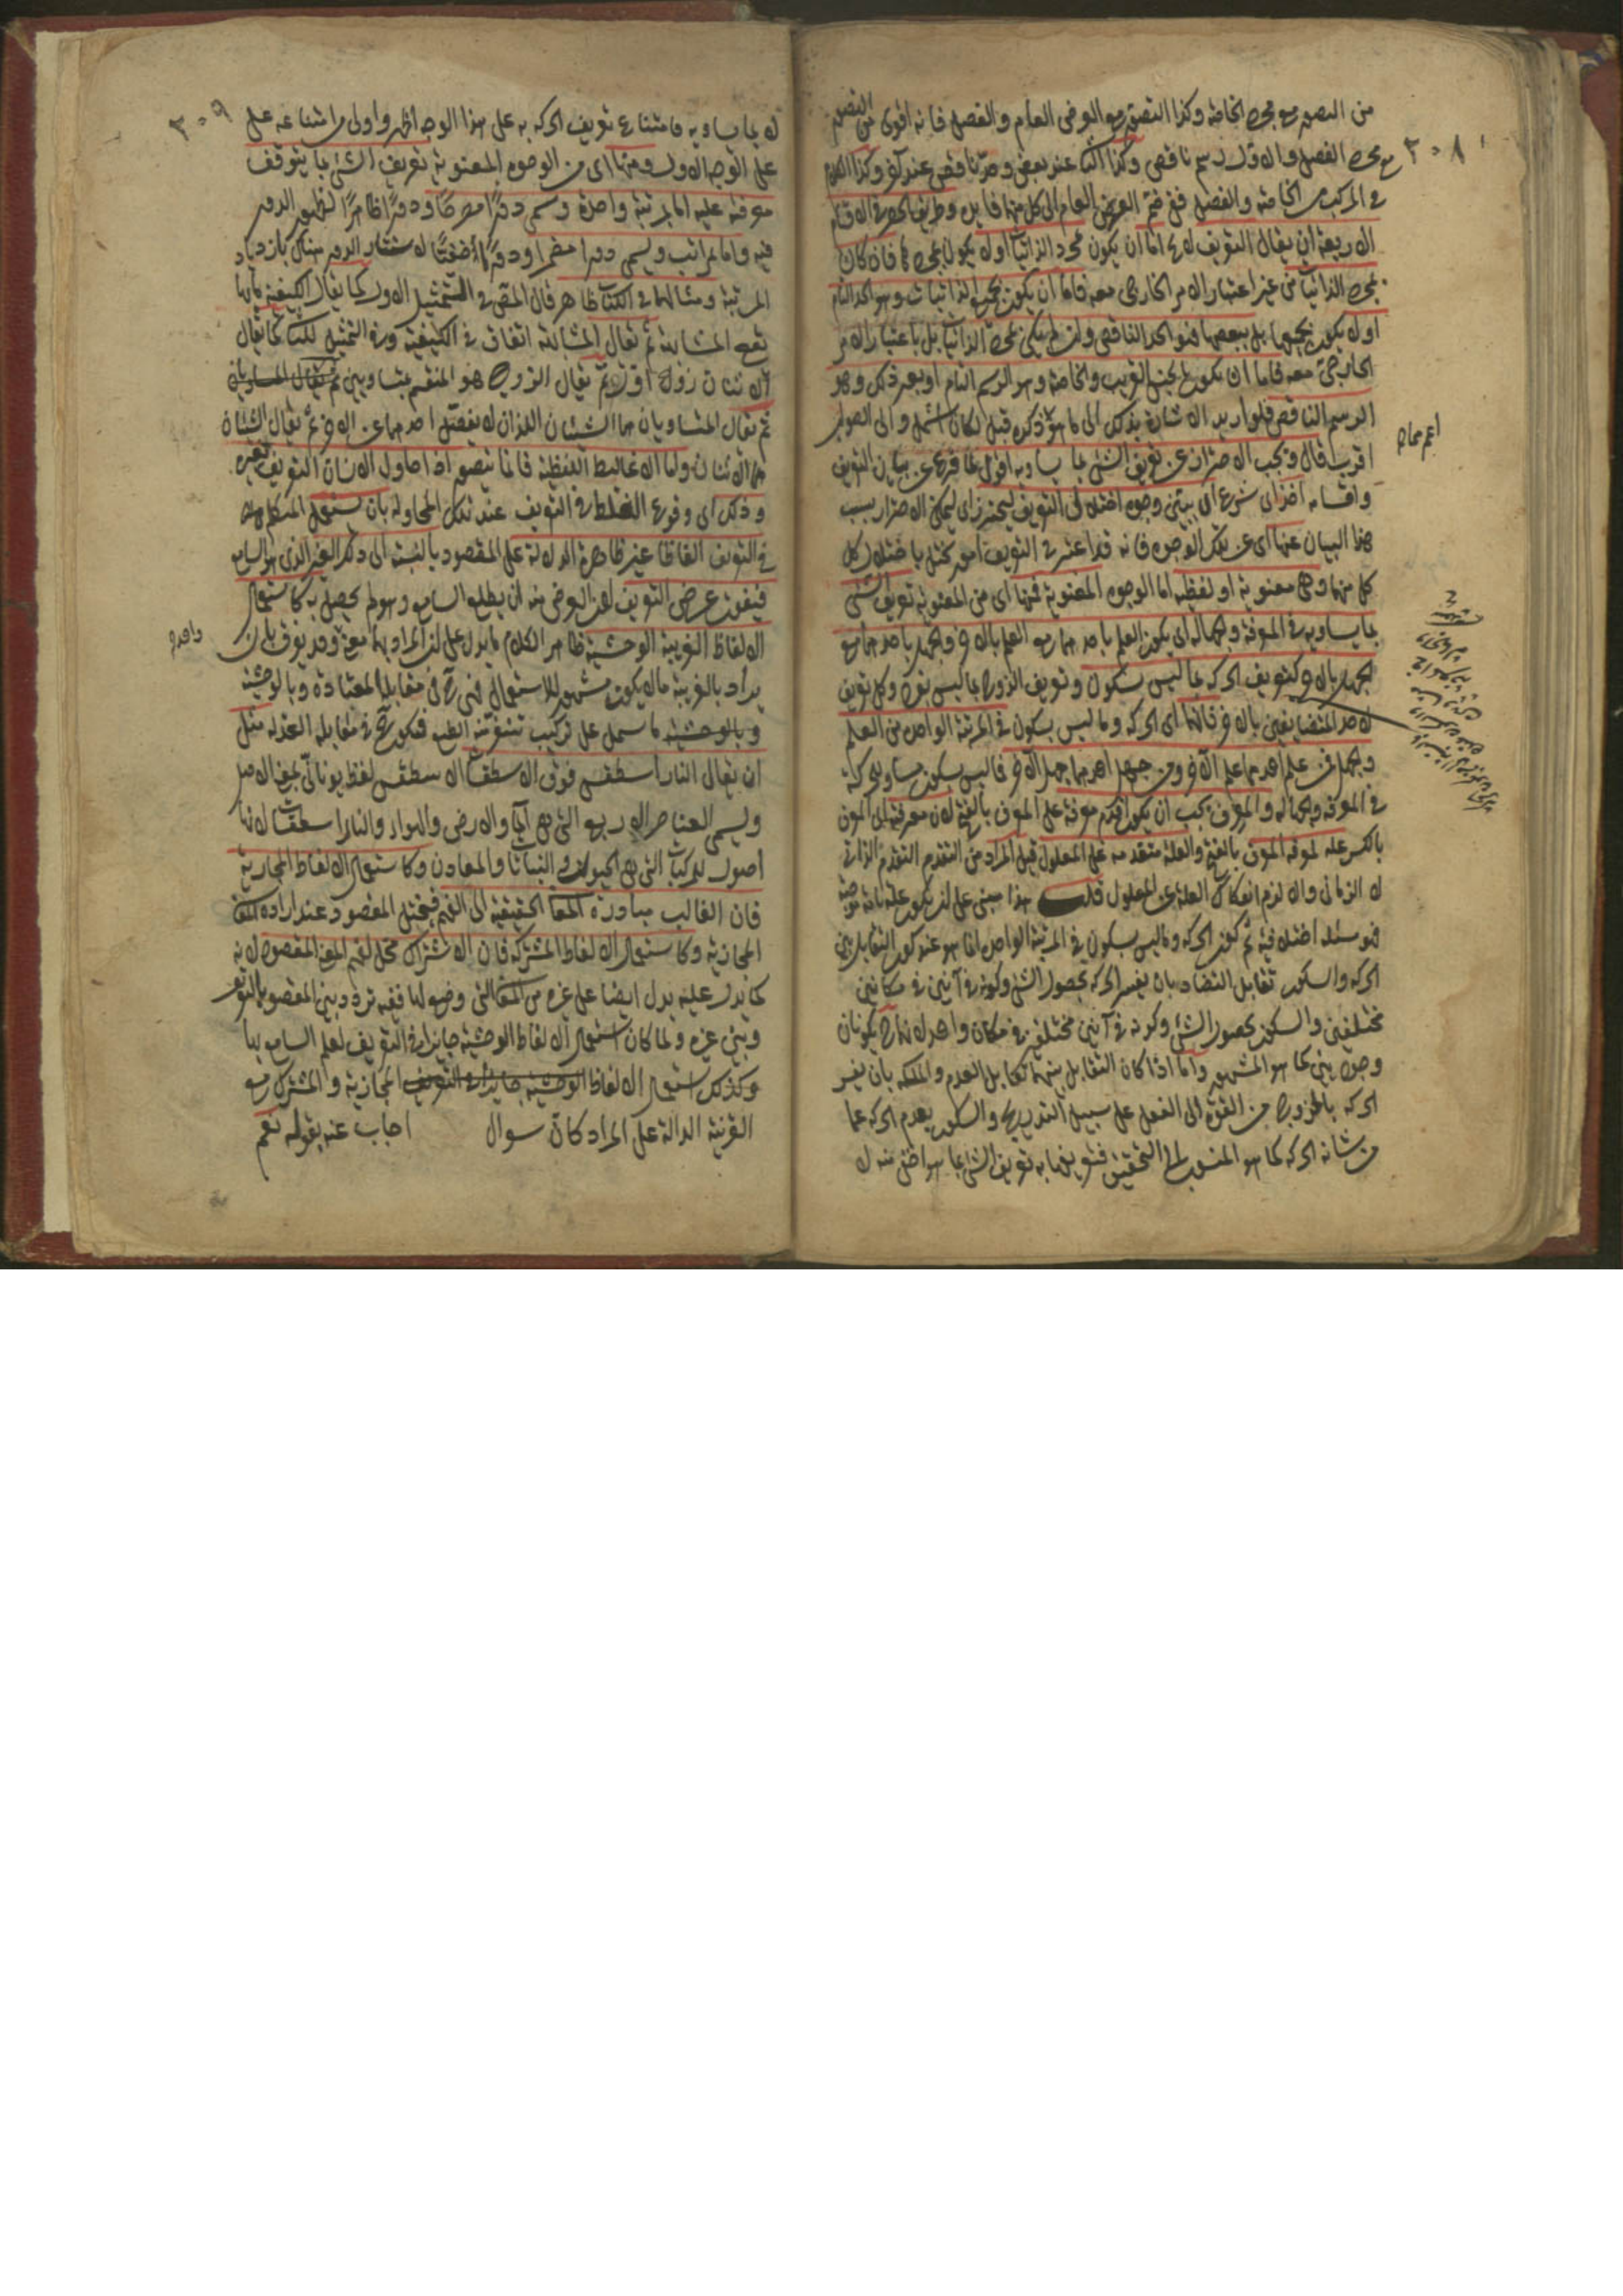 من التصور مع مجرد الخاصة وكذا التصور مع العرض العام والفصل فانه اقوى من التصور
مع مجرد الفصل والاول رسم ناقص وكذا الثاني عند بعض وحد ناقص عند آخر وكذا الكلام
٣٠٨
في المركب من الخاصة والفصل ففي ضم العرض العام الى كل منهما فايدة وطريق الحصر في الاقسام
الاربعة ان يقال التعريف لا يخ اما ان يكون بمجرد الذاتيات اولا يكون بمجردها فان كان
بمجرد الذاتيات من غير اعتبار الامر الخارجي معه فاما ان يكون بجميع الذاتيات وهو الحد التام
اولا يكون بجميعها بل ببعضها فهو الحد الناقص وان لم يكن بمجرد الذاتيات بل باعتبار الامر
الخارجي معه فاما ان يكون بالجنس القريب والخاصة وهو الرسم التام او بغير ذلك وهو
الرسم الناقص فلو اريد الاشارة بذلك الى ما هو ذكره قبل لكان اشمل والى الصواب
اقرب قال ويجب الاحتراز عن تعريف الشئ بما يساويه اقول لما فرغ عن بيان التعريف
واقسامه اخذ اى شرع ان يبين وجوه اختلال التعريف ليحترز اى ليمكن الاحتراز بسبب
هذا البيان عنها اى عن تلك الوجوه فانه قد اعتبر في التعريف امور يختل باختلال كل
كل منها وهى معنوية او لفظية اما الوجوه المعنوية فمنها اى من المعنوية تعريف الشئ
بما يساويه في المعرفة والجهالة اى يكون العلم باحدهما مع العلم بالاخر والجهل باحدهما مع
الجهل بالاخر كتعريف الحركة بما ليس بسكون وتعريف الزوج بما ليس بفرد وكل تعريف
لاحد المتضايفين بالاخر فانهما اى الحركة وما ليس بسكون في المرتبة الواحدة من العلم
والجهل فمن علم احدهما علم الآخر ومن جهل احدهما جهل الآخر فما ليس بسكون يساوى الحركة
في المعرفة والجهالة والمعرف يجب ان يكون اقدم معرفة على المعرف بالفتح لان معرفة اى المعرف
بالكسر علة لمعرفة المعرف بالفتح والعلة متقدمة على المعلول قيل المراد من التقدم التقدم الذاتي
لا الزماني والا لزم انفكاك العلة عن المعلول قلت هذا مبنى على ان يكون علة تامة
فهو مسئلة اختلف فيه ثم كون الحركة وما ليس بسكون في المرتبة الواحدة انما هو عند كون التقابل بين
الحركة والسكون تقابل التضاد بان يفسر الحركة بحصول الشئ وكونه في آنين في مكانين
مختلفين والسكون بحصول الشئ وكونه في آنين مختلفين في مكان واحد لانهما ح يكونان
وجوديين كما هو المشهور واما اذا كان التقابل بينهما تقابل العدم والملكة بان يفسر
الحركة بالخروج من القوة الى الفعل على سبيل التدريج والسكون بعدم الحركة عما
من شانه الحركة كما هو المنسوب الى التحقيق فتعريفها به تعريف الشئ بما هو اخفى منه لا
٣٠٩
لا بما يساويه فامتناع تعريف الحركة به على هذا الوجه اظهر واولى من امتناعه على
على الوجه الاول ومنها اى من الوجوه المعنوية تعريف الشئ بما يتوقف
معرفته عليه اما بمرتبة واحدة وسمى دورا مصرحا ودورا ظاهرا لظهور الدور
فيه واما بمراتب ويسمى دورا مضمرا ودورا خفيا لاستتار الدور هناك بازدياد
المرتبة ومثالهما في الكتاب ظاهر قال المص في التمثيل الاول كما يقال الكيفية ما بها
تقع المشابهة ثم يقال المشابهة اتفاق في الكيفية وفي التمثيل للثاني كما يقال
الاثنان زوج اول ثم يقال الزوج هو المنقسم بمتساويين
ثم يقال المتساويان هما الشيئان اللذان لا يفضل احدهما عن الاخر ثم يقال الشيئان
هما الاثنان واما الاغاليط اللفظية فانما يتصور اذا حاول الانسان التعريف لغيره
وذلك اى وقوع الغلط في التعريف عند تلك المحاولة بان يستعمل المتكلم
في التعريف الفاظا غير ظاهرة الدلالة على المقصود بالنسبة الى ذلك الغير الذى هو السامع
فيفوت غرض التعريف لان الغرض منه ان يطلع السامع وهو لم يحصل به كاستعمال
الالفاظ الغريبة الوحشية ظاهر الكلام ما يدل على ان المراد بهما معنى وقد يفرق بان
واحد
يراد بالغريبة ما لا يكون مشهور الاستعمال فهى ح في مقابلة المعتادة وبالوحشية
وبالوحشية ما يشمل على تركيب يتنفر عنه الطبع فيكون ح في مقابلة العذبة مثل
ان يقال النار اسطقس فوق الاسطقسات الاسطقس لفظ يوناني بمعنى الاصل
ويسمى العناصر الاربع التي هي الماء والارض والهواء والنار اسطقسات لانها
اصول المركبات التي هي الحيوان والنباتات والمعادن وكاستعمال الالفاظ المجازية
فان الغالب مبادرة المعاني الحقيقية الى الفهم فيختل المقصود عند ارادة المعاني
المجازية وكاستعمال الالفاظ المشتركة فان الاشتراك مخل لفهم المعنى المقصود لانه
كما يدل عليه يدل ايضا على غيره من المعاني التي وضع لها ففيه تردد بين المقصود بالتعريف
وبين غيره ولما كان استعمال الالفاظ الوحشية جايزا في التعريف لعلم السامع بها
وكذلك استعمال الالفاظ المجازية والمشتركة مع
القرينة الدالة على المراد كان سوال اجاب عنه بقوله نعم